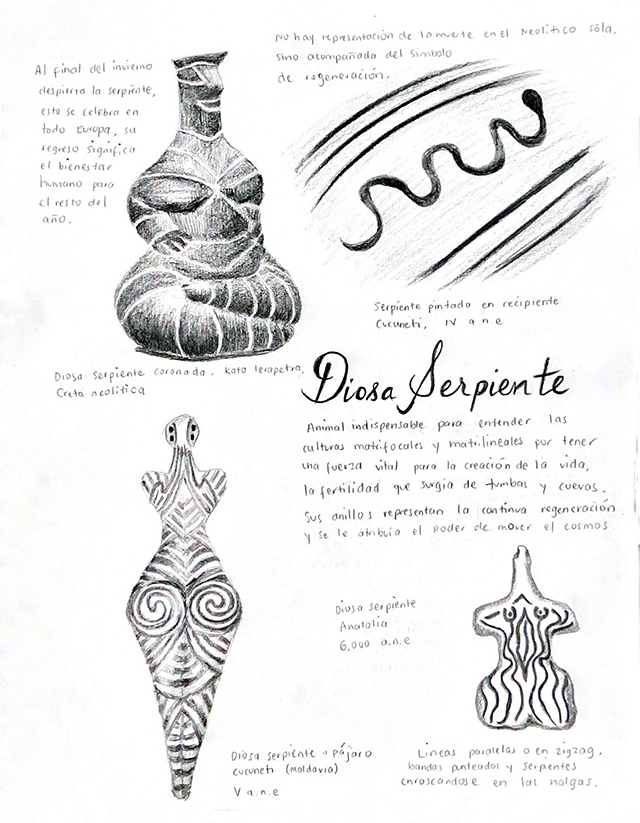 No hay representación de la muerte en el Neolítico sóla,
sino acompañada del símbolo
de regeneración.
Al final del invierno
despierta la serpiente,
esto se celebra en
todo Europa, su
regreso significa
el bienestar
humano para
el resto del
año.
Serpiente pintada en recipiente
Cucuneti, IV a.n.e
Diosa serpiente coronada, Kato Ierapetra,
Creta neolítica
Diosa Serpiente
Animal indispensable para entender las
culturas matrifocales y matrilineales por tener
una fuerza vital para la creación de la vida,
la fertilidad que surgía de tumbas y cuevas.
Sus anillos representan la continua regeneración
y se le atribuía el poder de mover el cosmos.
Diosa serpiente
Anatolia
6,000 a.n.e
Diosa serpiente o pájaro
Cucuneti (Moldavia)
V a.n.e
Líneas paralelas o en zigzag,
bandas punteadas y serpentes
enroscandose en las nalgas.